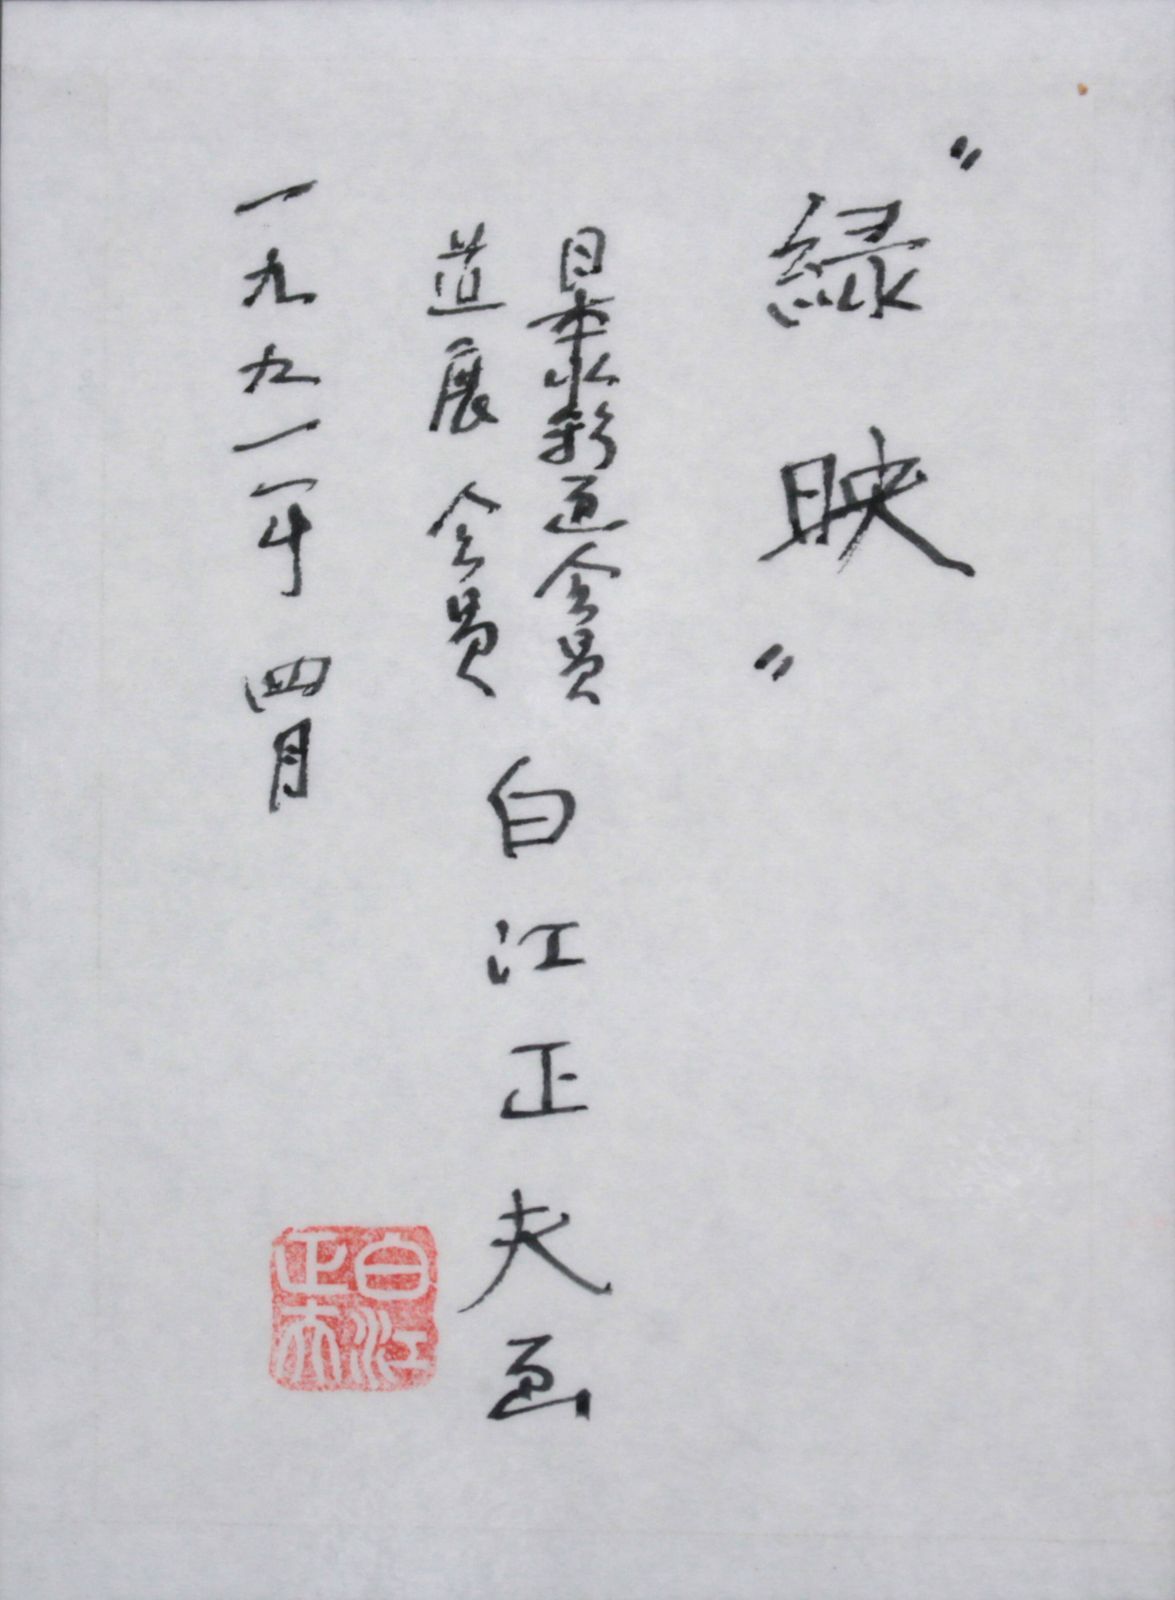 〝緑映〟
日本水彩画会員
道展 会員
白江正夫画
一九九一年 四月
白江
正夫